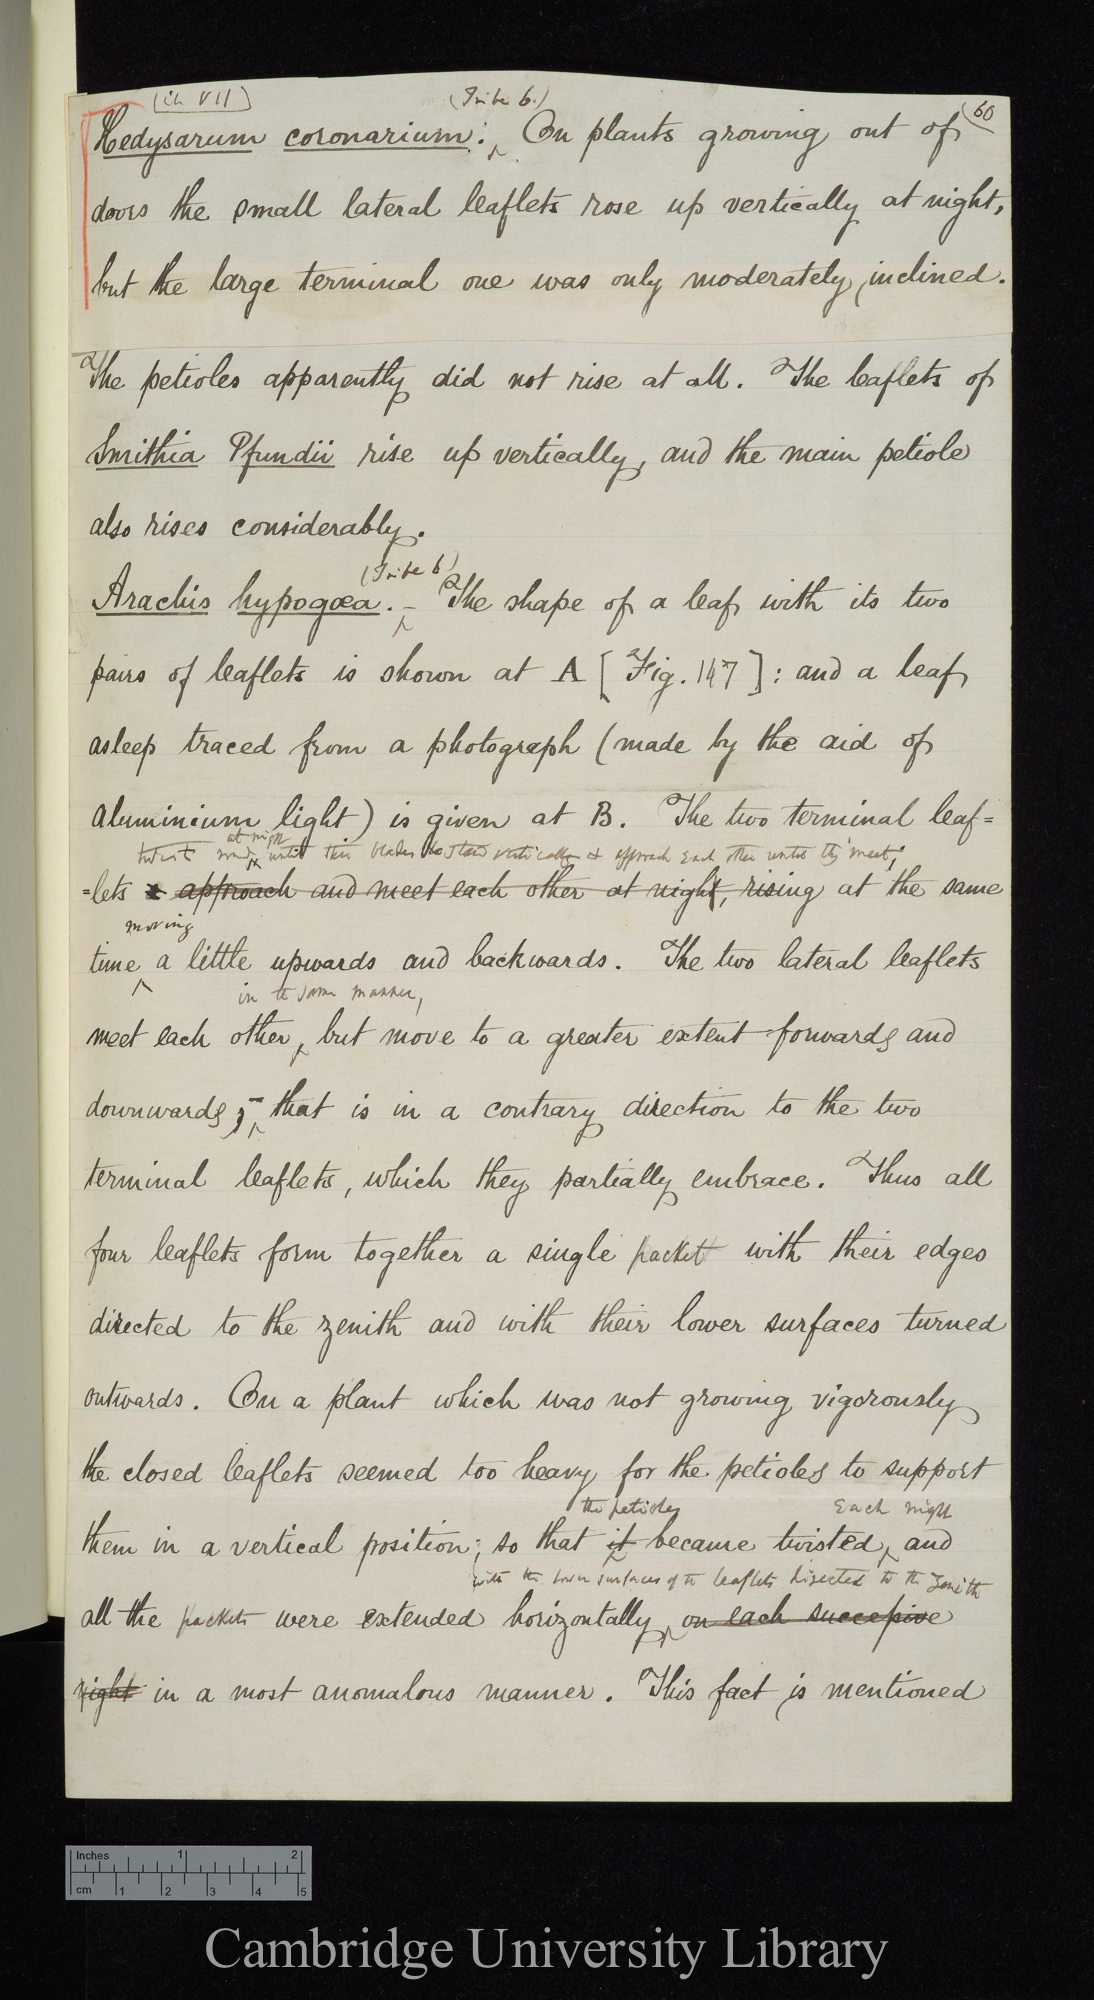 (Ch VII)
(Tribe 6.)
60
Hedysarum coronarium: On plants growing out of
doors the small lateral leaflets rose up vertically at night,
but the large terminal one was only moderately inclined.
The petioles apparently did not rise at all. The leaflets of
Smithia Pfundii rise up vertically, and the main petiole
also rises considerably.
(Tribe 6)
Arachis hypogœa. – The shape of a leaf with its two
pairs of leaflets is shown at A [Fig. 147]: and a leaf
asleep traced from a photograph (made by the aid of
aluminium light) is given at B. The two terminal leaf=
at night
twist round until their blades stand vertically & approach each other until they meet,
=lets approach and meet each other at night, rising at the same
moving
time a little upwards and backwards. The two lateral leaflets
in the same manner,
meet each other, but move to a greater extent forwards and
downwards; – that is in a contrary direction to the two
terminal leaflets, which they partially embrace. Thus all
four leaflets form together a single packet with their edges
directed to the zenith and with their lower surfaces turned
outwards. On a plant which was not growing vigorously
the closed leaflets seemed too heavy for the petioles to support
the petioles each night
them in a vertical position; so that it became twisted, and
with the lower surfaces of the leaflets directed to the zenith
all the packets were extended horizontally, on each successive
night in a most anomalous manner. This fact is mentioned
Inches 1 2
cm 1 2 3 4 5
Cambridge University Library